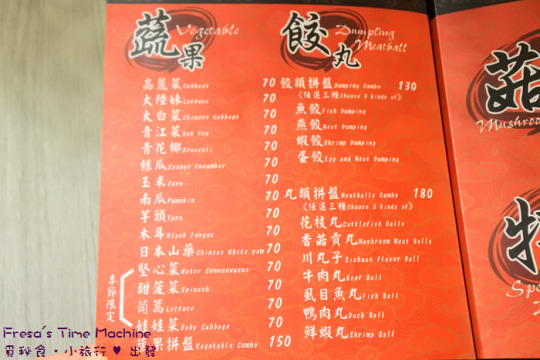 蔬果 Vegetable
高麗菜 Cabbage 70
大陸妹 Lettuce 70
大白菜 Chinese Cabbage 70
青江菜 Bok Coy 70
青花椰 Broccoli 70
絲瓜 Sponge Cucumber 70
玉米 Corn 70
南瓜 Pumpkin 70
芋頭 Taro 70
木耳 Black Fungus 70
日本山藥 Chinese White yam 70
季節限定
空心菜 Water 70
甜菠菜 Spinach 70
茼蒿 Lettuce 70
娃娃菜 Baby Cabbage 70
蔬果拼盤 Vegetable Combo 150
餃丸 Dumpling Meatball
餃類拼盤 Dumping Combo 130
《任選三種Choose 3 kinds of》
魚餃 Fish Dumping
燕餃 Meat Dumping
蝦餃 Shrimp Dumping
蛋餃 Egg and Meat Dumping
丸類拼盤 Meatballs Combo 180
《任選三種Choose 3 kinds of》
花枝丸 Cuttlefish Balls
香菇貢丸 Mushroom Meat Balls
川丸子 Sichuan Flavor Ball
牛肉丸 Beef Ball
虱目魚丸 Fish Ball
鴨肉丸 Duck Ball
鮮蝦丸 Shrimp Ball
菇
Mushroo
特
Spe
Fresa's Time Machine
覓秘食・小旅行 ♥ 出發